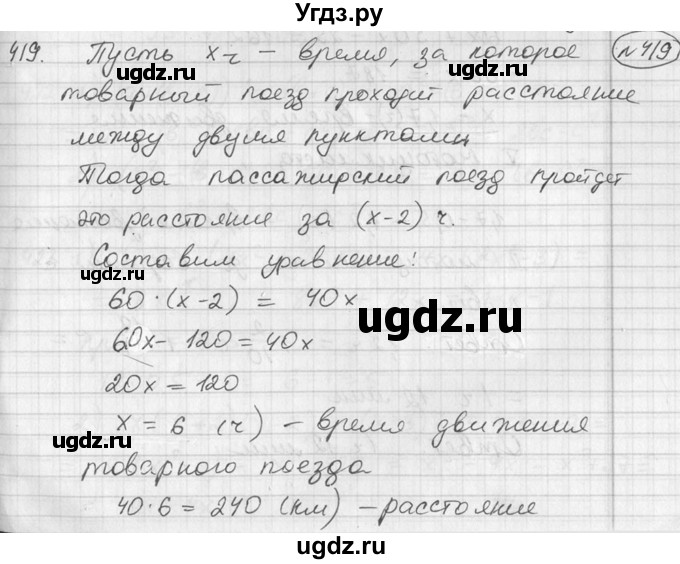 Угдз.ру
419. Пусть x ч – время, за которое №419
товарный поезд проходит расстояние
между двумя пунктами
Тогда пассажирский поезд пройдет
это расстояние за (x-2) ч.
Составим уравнение:
60·(x-2) = 40x
60x - 120 = 40x
20x = 120
x = 6 (ч) – время движения
товарного поезда
40·6 = 240 (км) – расстояние
ugdz.ru
ugdz.ru
ugdz.ru
ugdz.ru
ugdz.ru
ugdz.ru
ugdz.ru
ugdz.ru